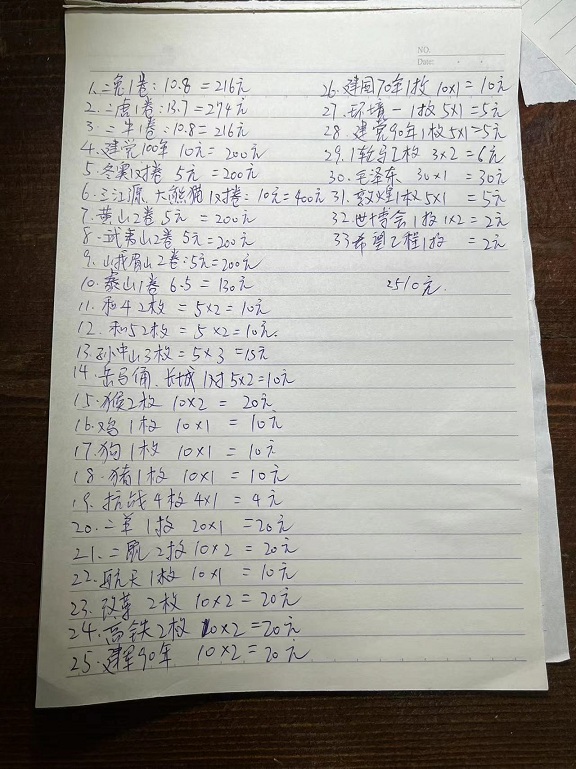 NO.
Date:
1.二兔1卷:10.8=216元
2.二虎1卷:13.7=274元
3.二牛1卷:10.8=216元
4.建党100年 10元=200元
5.冬奥1对卷 5元=200元
6.三江源.大熊猫1对卷:10元=400元
7.黄山2卷 5元=200元
8.武夷山2卷 5元=200元
9.峨眉山2卷:5元=200元
10.泰山1卷 6.5=130元
11.和4 2枚=5×2=10元
12.和5 2枚=5×2=10元.
13.孙中山3枚=5×3=15元
14.兵马俑.长城1对5×2=10元
15.猴2枚 10×2=20元
16.鸡1枚 10×1=10元
17.狗1枚 10×1=10元
18.猪1枚 10×1=10元
19.抗战4枚 4×1=4元
20.二羊1枚 20×1=20元
21.二航2枚10×2=20元
22.航天1枚 10×1=10元
23.改革2枚 10×2=20元
24.高铁2枚 10×2=20元
25.建军90年 10×2=20元
26.建国70年1枚 10×1=10元
27.环境一1枚5×1=5元
28.建党90年1枚5×1=5元
29.1轮马2枚 3×2=6元
30.毛泽东 30×1=30元
31.敦煌1枚5×1=5元
32.世博会1枚1×2=2元
33希望工程1枚=2元
2510元.